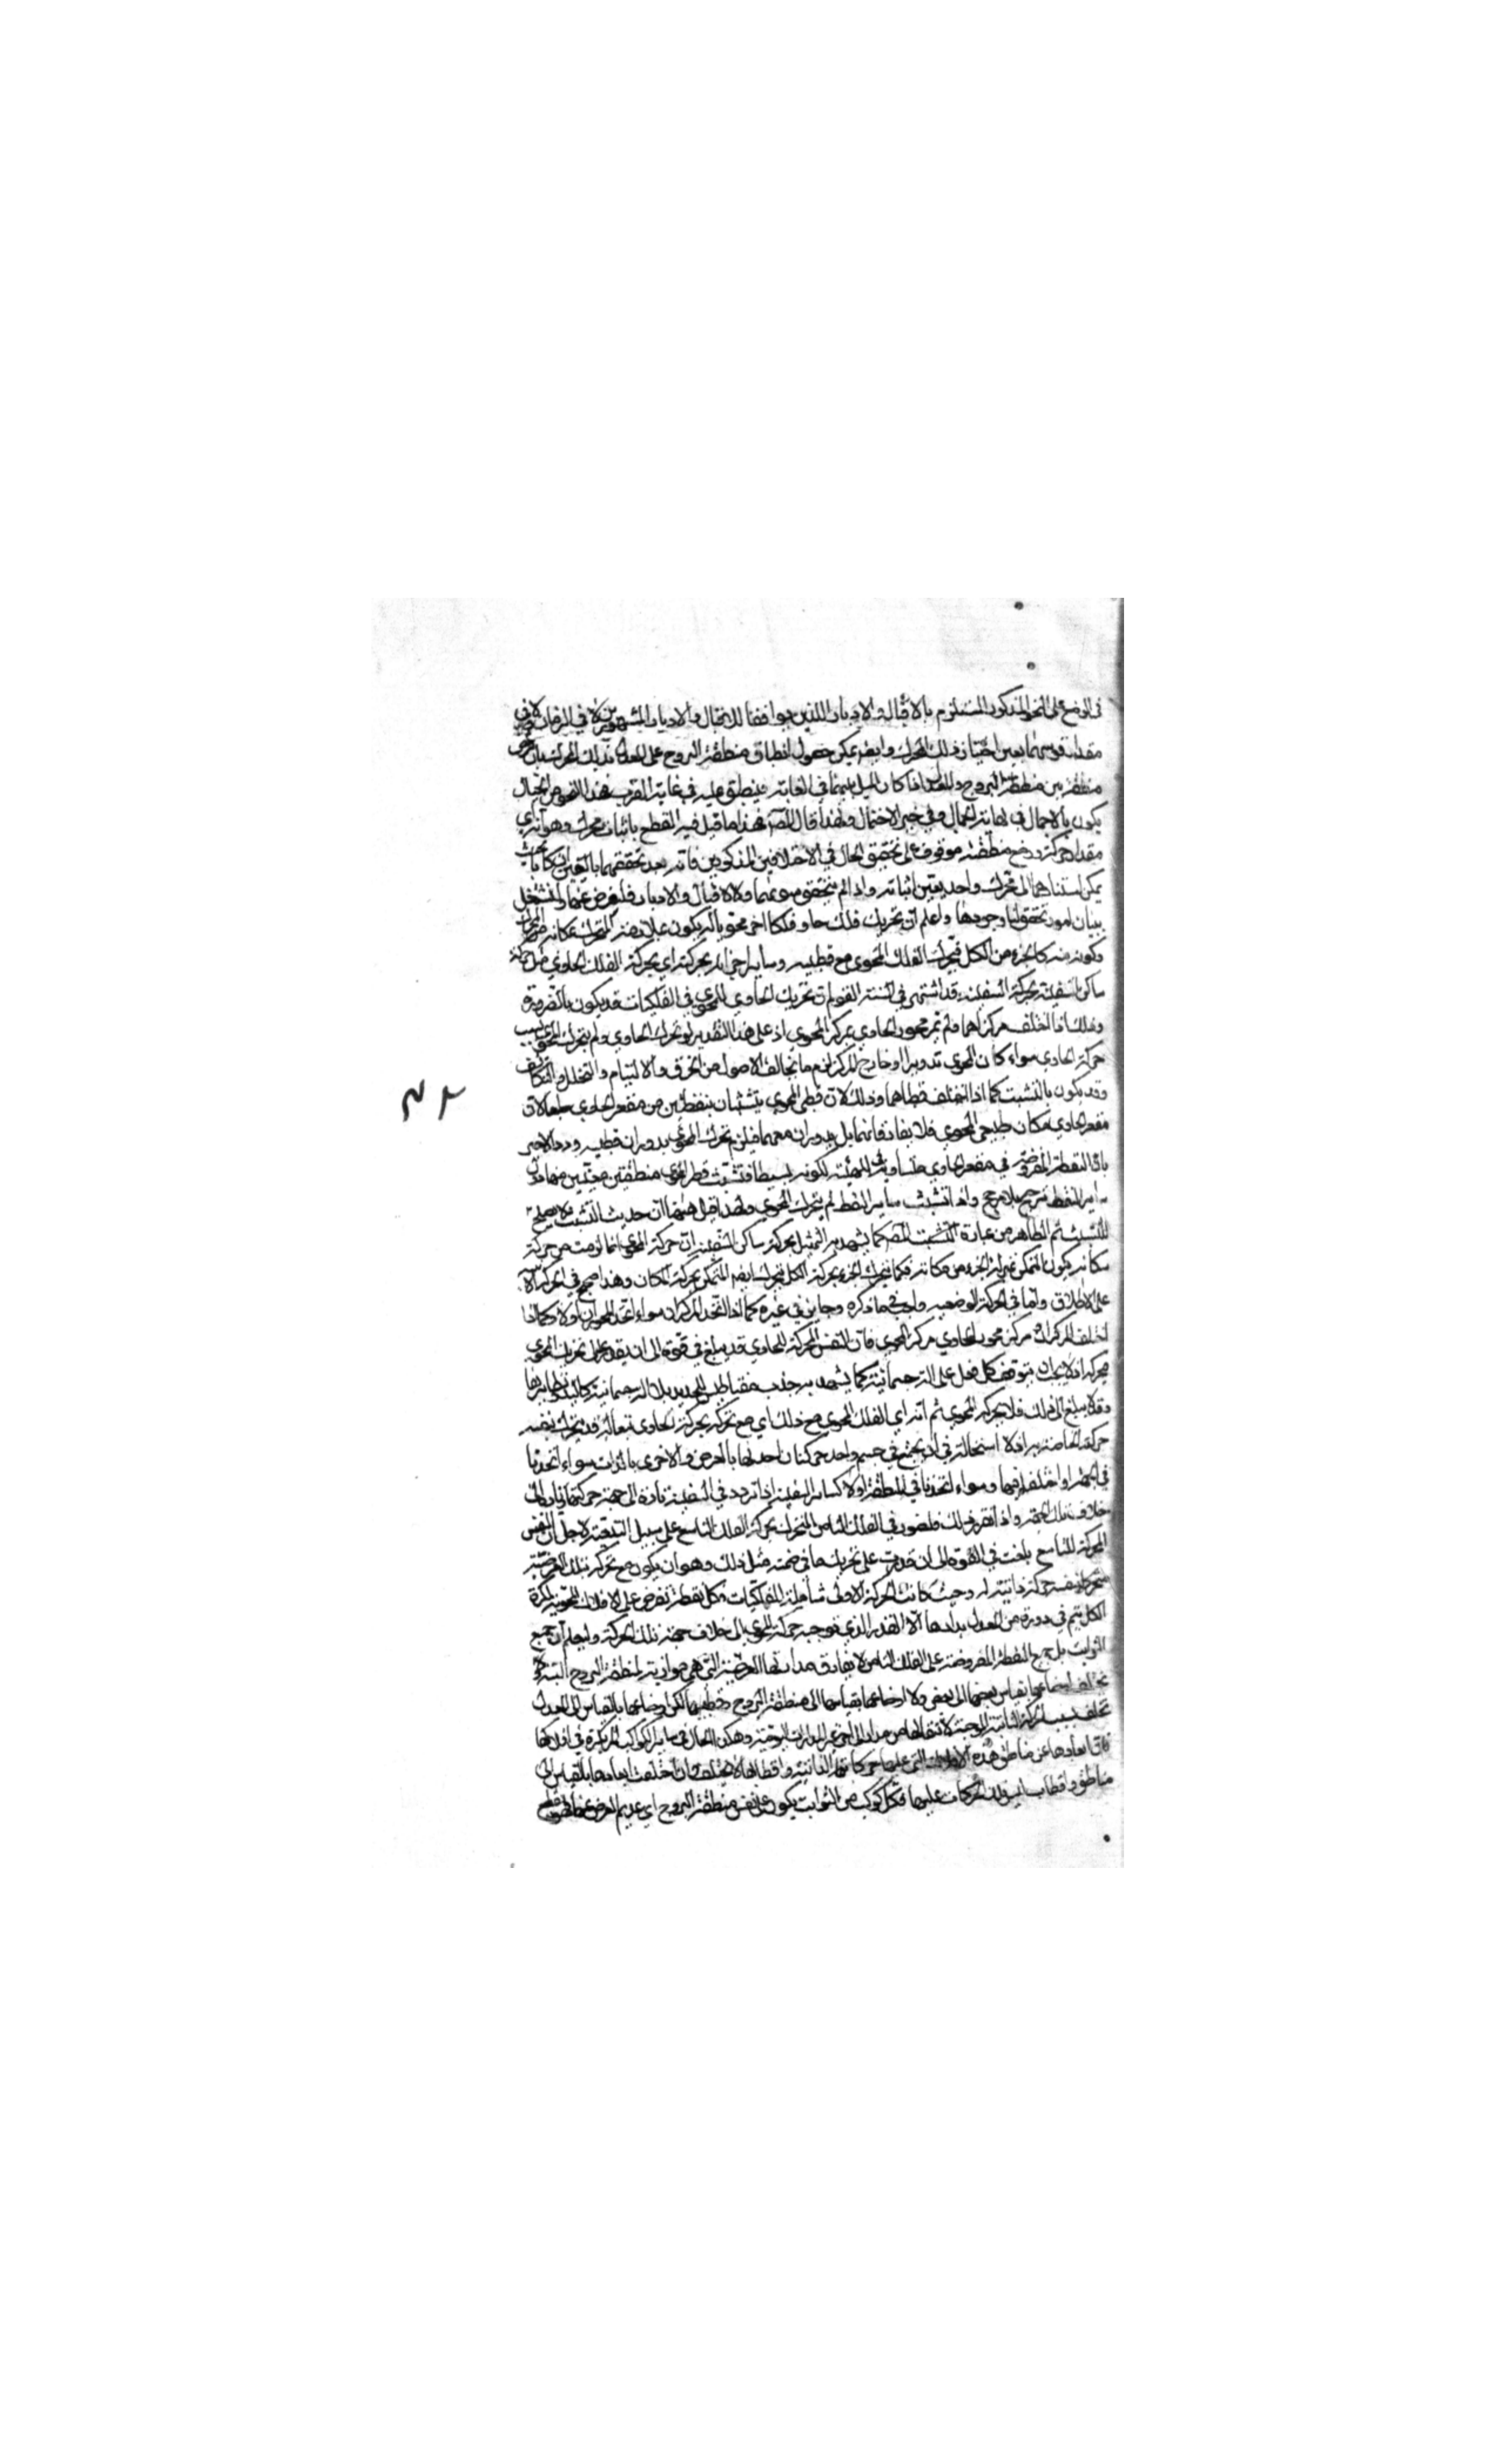 في الوضع على النحو المذكور المستلزم بالاقبال والادبار اللذين يوافقا للاقبال والادبار المشهورين لا في الزمان ولا في
مقدار قوسهما يعين اختيار ذلك المحرك وايضا يمكن حصول انطباق منطقة البروج على المعدل بذلك المحرك بان
منطقة البروج والمعدل اذا كان الميل بينهما في الغاية ينطبق عليه في غاية القرب فهذا النحو من الخيال
يكون بالاحتمال في نهاية الجمال وفي حيز الاحتمال ولهذا قال المصنف فهذا ما قيل فيه القطع باثبات محرك وهو انه باي
مقدار حركته ووضع منطقته موقوف على تحقيق الحال في الاختلافين المذكورين فانه بعد تحققهما باليقين ان كانا بحيث
يمكن استنادهما الى محرك واحد يتعين اثباته واذا لم يتحقق سوى ولا الاقبال والادبار فلنعرض عنهما ولنشتغل
ببيان امور تحقق لنا وجودها واعلم ان تحريك فلك حاو فلكا اخر محويا له يكون
وكونه منه كالجزء من الكل فيتحرك الفلك المحوي مع قطبيه وساير اجزائه بحركته اي بحركة الفلك الحاوي مثل حركة
ساكن السفينة بحركة السفينة قد اشتهر في السنة القوم ان تحريك الحاوي للمحوي في الفلكيات قد يكون بالضرورة
وذلك اذا اختلف مركزاهما ولم يمر محور الحاوي بمركز المحوي اذ على هذا التقدير لو تحرك الحاوي ولم يتحرك المحوي بسبب
حركة الحاوي سواء كان المحوي تدويرا او خارج المركز لزم ما يخالف الاصول من الخرق والالتيام والتخلخل والتكاثف
وقد يكون بالتشبث كما اذا اختلف قطباهما وذلك لان قطبي المحوي يتشبثان بنقطتين من مقعر الحاوي لان
مقعر الحاوي مكان طبيعي للمحوي فلا يفارقانهما بل يدوران معهما فيلزم تحرك المحوي بدوران قطبيه ورد الاخير
بان النقط المفروضة في مقعر الحاوي متساوية الهيئة لكونه بسيطا فتشبث قطبي المحوي بنقطتين معينتين منهما دون
ساير النقط ترجيح بلا مرجح واذا تشبث ساير النقط لم يتحرك المحوي ولهذا قيل ههنا ان حديث التشبث لا يصلح
للتشبث ثم الظاهر من عبارة المصنف كما يشهد به التمثيل بحركة ساكن السفينة ان حركة المحوي انما لزمت من حركة
مكانه بكون المتمكن بمنزلة الجزء من مكانه فكما يتحرك الجزء بحركة الكل يتحرك ايضا المتمكن بحركة المكان وهذا صحيح في الحركة الاينية
على الاطلاق واما في الحركة الوضعية واجب فيما ذكره وجايز في غيره كما اذا اتحد المركزان سواء اتحد المحوران اولا وكما اذا
اختلف المركزان مر محور الحاوي بمركز المحوي فان النفس المحركة للحاوي قد يبلغ في قوته الى ان يقدر على تحريك المحوي
فيحركه اذ لا يجب ان يتوقف كل فعل على الة جسمانية كما يشهد به جذب مغناطيس للحديد بلا الة جسمانية كاليد ونظايرها
وقد لا يبلغ الى ذلك فلا يحركه المحوي ثم انه اي الفلك المحوي مع ذلك اي مع تحركه بحركة الحاوي تبعا له قد يتحرك بنفسه
حركة خاصة به اذ لا استحالة في ان يجتمع في جسم واحد حركتان احدهما بالعرض والاخرى بالذات سواء اتحدتا
في الجهة او اختلفتا فيها وسواء اتحدتا في المنطقة اولا كساير السفينة اذا تردد في السفينة تارة الى جهة حركتها وتارة الى
خلاف تلك الجهة واذا تقرر ذلك فلنصور في الفلك الثامن المتحرك بحركة الفلك التاسع على سبيل التبعية لاجل ان النفس
المحركة للتاسع بلغت في القوة الى ان قدرت على تحريك ما في ضمنه مثل ذلك وهو ان يكون مع تحركه بتلك العرضية
متحركا بنفسه حركة ذاتية له وحيث كانت الحركة الاولى شاملة للفلكيات فكل نقطة تفرض على الافلاك المحوية لكرة
الكل يتم في دورة من المعدل مدارها الا القدر الذي توجبه حركة المحوي الى خلاف جهة تلك الحركة وليعلم ان جميع
الثوابت بل جميع النقط المفروضة على الفلك الثامن لا يفارق مداراتها العرضية التي هي موازية لمنطقة البروج البتة ولا
تختلف اوضاعها بقياس بعضها الى بعض ولا اوضاعها بقياسها الى منطقة البروج وقطبيها لكن اوضاعها بالقياس الى المعدل
تختلف بسبب الحركة الثانية الموجبة لانتقالها من مدار الى اخر غير المدارات اليومية وهكذا الحال في ساير الكواكب المركوزة في افلاكها
فان ابعادها عن مناطق هذه الافلاك التي عليها حركاتها الذاتية واقطابها لا تختلف وان اختلفت ابعادها بالقياس الى
مناطق واقطاب ليس تلك الحركات عليها فكل كوكب من الثوابت يكون على نفس منطقة البروج اي عديم العرض عنها